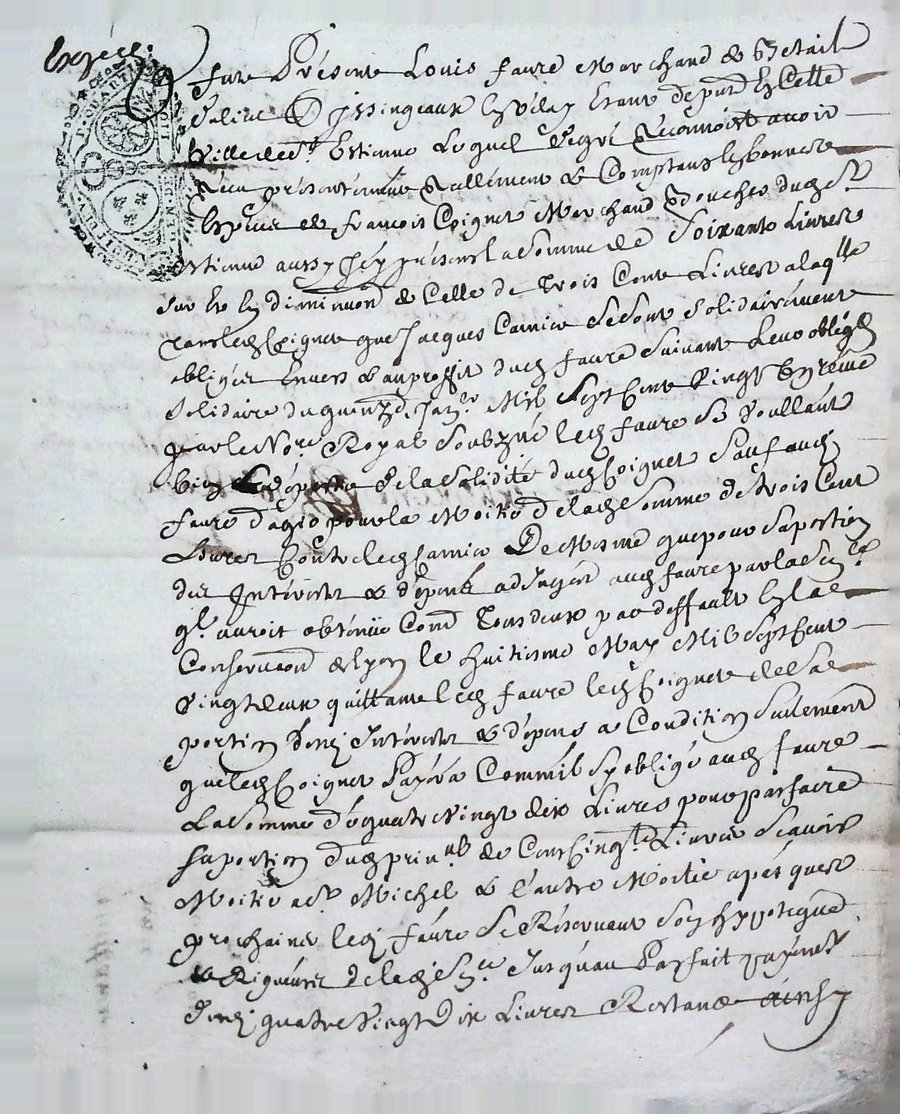 Expéd.
Fut Présent Louis faure Marchand de Betail
d'Issingeaux en Velay Etant de pnt En Cette
Ville de St Estienne Lequel de gré Reconnoist avoir
Receu présentement Reellement & Comptant en bonnes
Espèces de françois Coignet Marchand Boucher dud St
Estienne aussy Icy présent la Somme de Soixante Livres
Sur Et En diminuon de Celle de Trois Cent Livres a laqlle
tant led Coignet que Jacques Carnice Se Sont Solidairement
obligéz Envers & au proffit dud faure Suivant Leur obligon
Solidaire du Janer Mil Sept Cent Vingt
par le Nore Royal Soubzné led faure Se Voullant
bien de la Solidité dud Coignet Sauf aud
faure d'agir pour la Moitié de lad Somme de trois Cent
Livres Contre led Carnice De Mesme que pour Sa portion
des Intérests & dépens adjugés aud faure par la
ql auroit obtenüe Contre Tous deux par deffault En la
Conservaon de Lyon le huitiesme May Mil Sept Cent
Vingt deux quittant led faure led Coignet de Sa
portion desd Intérests & dépens a Condition Seulement
que led Coignet Payera Comme il S'y oblige aud faure
La Somme de quatre Vingt dix Livres pour parfaire
Sa portion dud prinal de Cent Cinqte Livres Scavoir
Moitié a St Michel & l'autre Moitié a pasques
prochaines led faure Se Réservant Son hypoteque
& Rigueurs de lad Jusqu'au Parfait payemet
desd quatre Vingt Dix Livres Restans ainsy